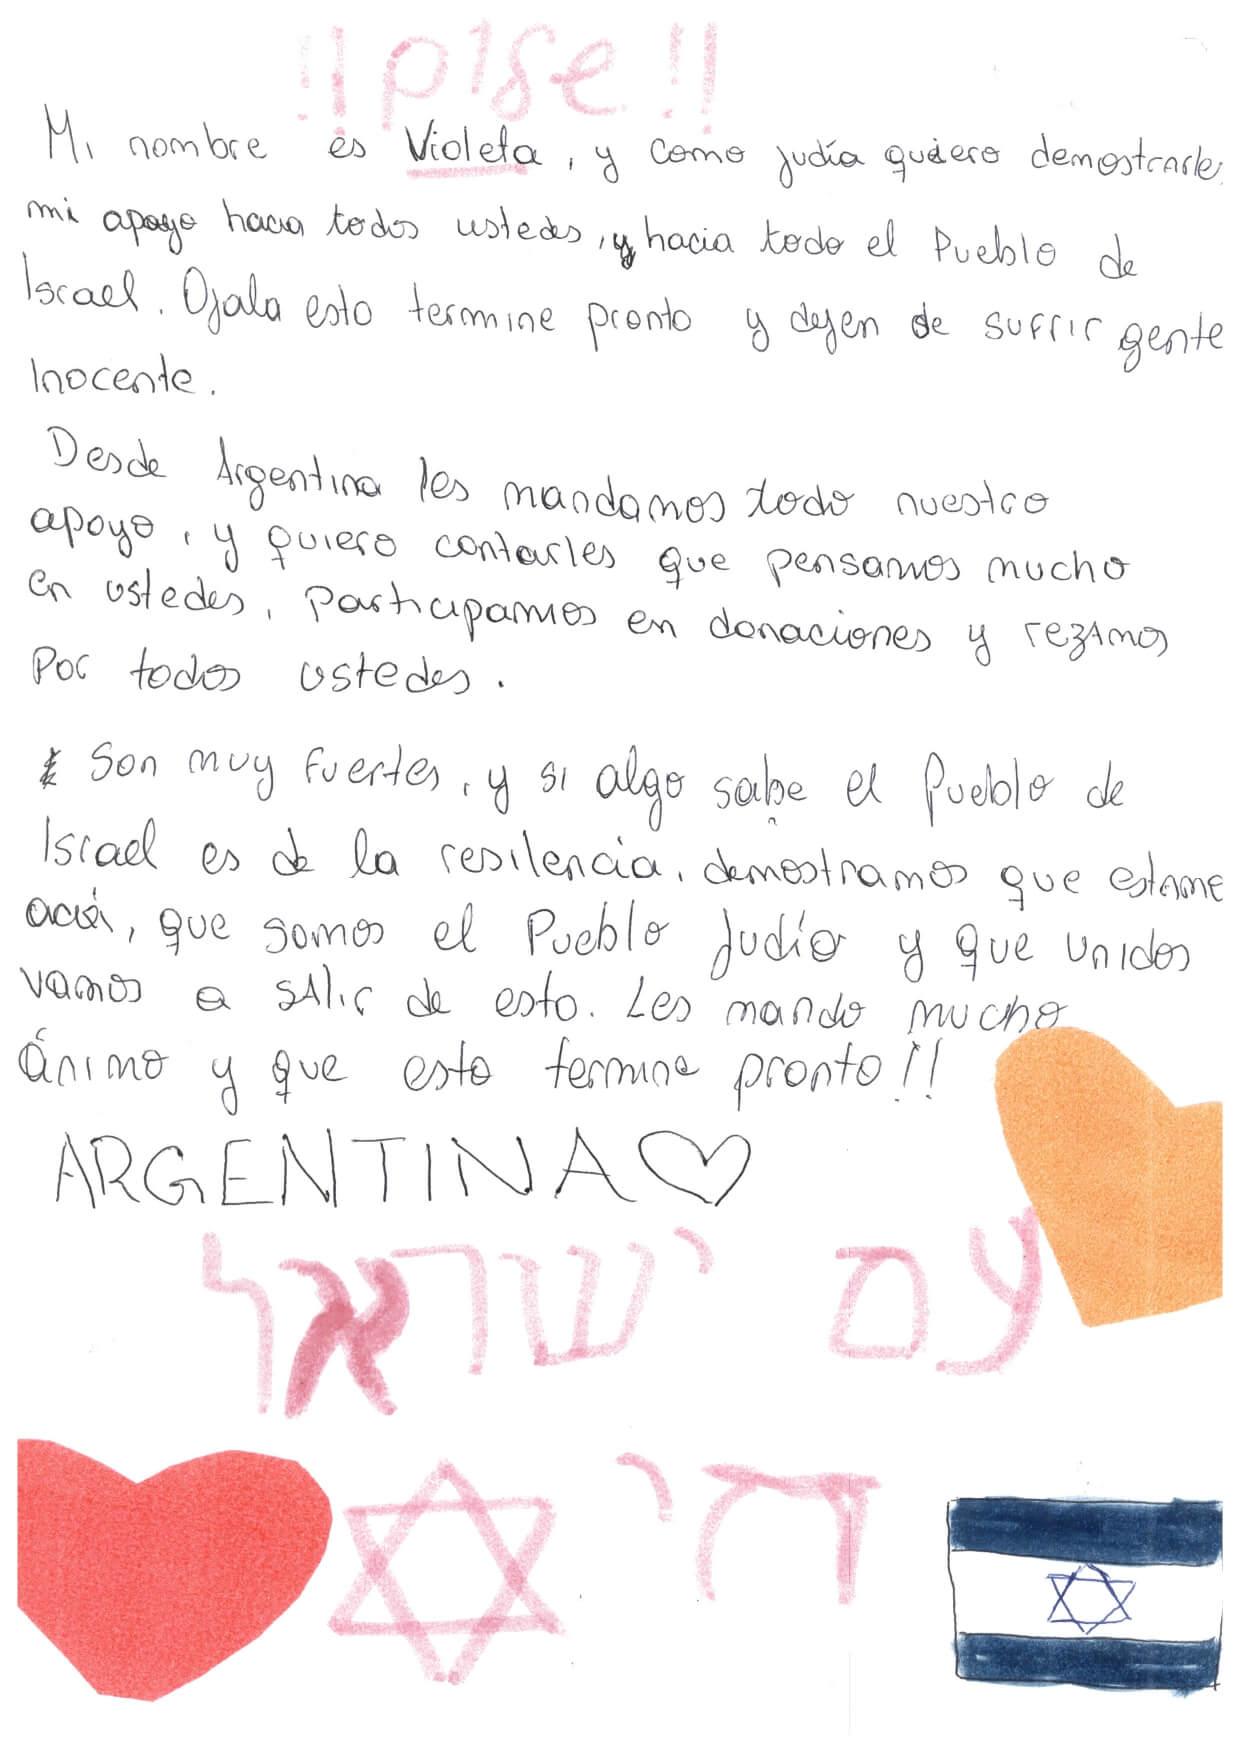 !! שלום !!
Mi nombre es Violeta, y como judía quiero demostrarle
mi apoyo hacia todos ustedes, y hacia todo el Pueblo de
Israel. Ojala esto termine pronto y dejen de sufrir gente
Inocente.
Desde Argentina les mandamos todo nuestro
apoyo, y quiero contarles que pensamos mucho
en ustedes, Participamos en donaciones y rezamos
Por todos ustedes.
Son muy fuertes, y si algo sabe el Pueblo de
Israel es de la resilencia, demostramos que estamo
acá, que somos el Pueblo Judío y que unidos
vamos a salir de esto. Les mando mucho
ánimo y que esto termine pronto!!
ARGENTINA
עם ישראל
חי